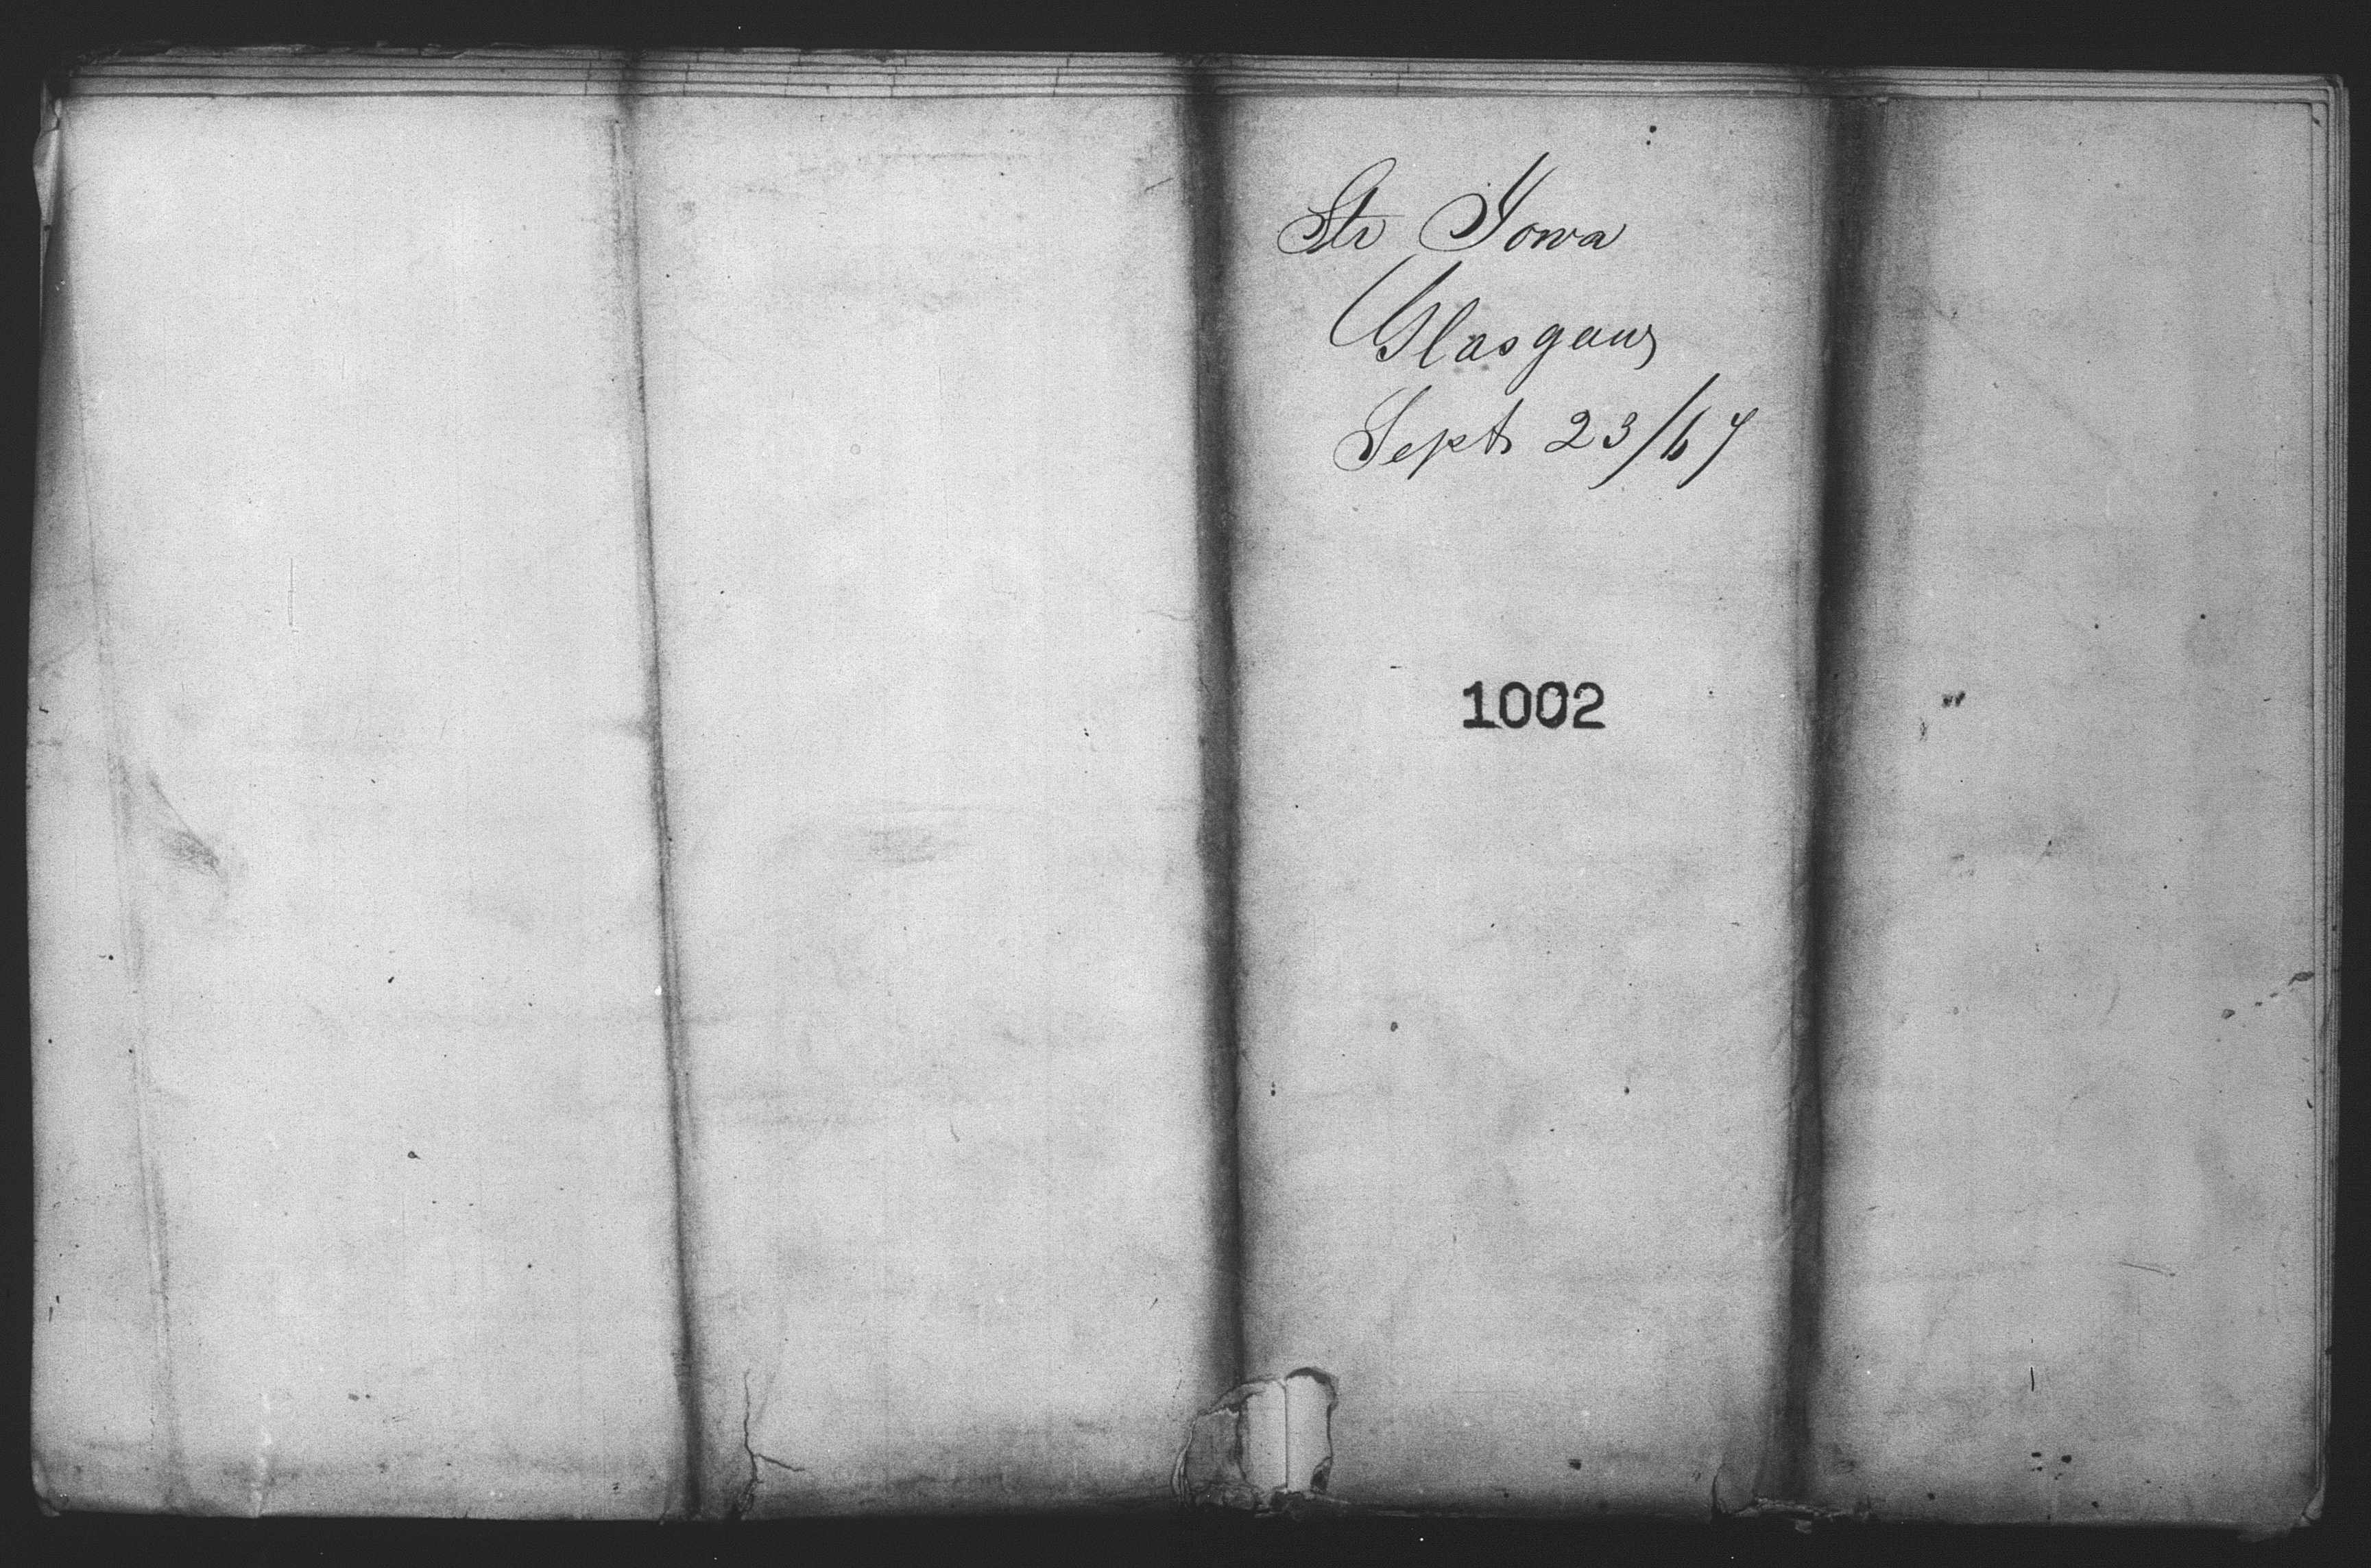 Str Iowa
Glasgow
Sept 23/67
1002